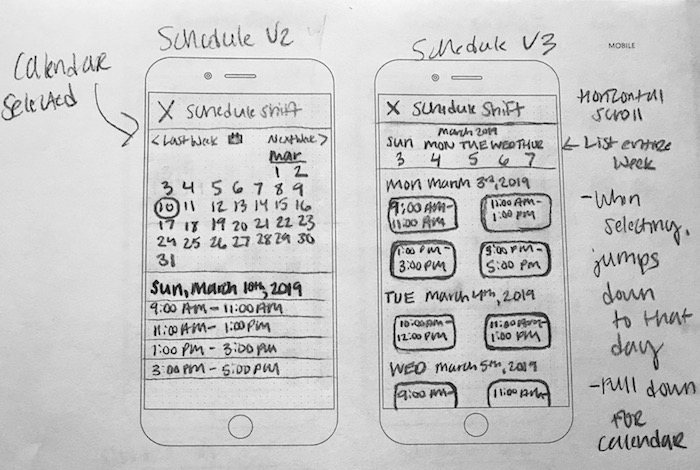 Schedule V2
Calendar
Selected
X Schedule Shift
< Last Week Next Week >
Mar
1 2
3 4 5 6 7 8 9
10 11 12 13 14 15 16
17 18 19 20 21 22 23
24 25 26 27 28 29 30
31
Sun, March 10th, 2019
9:00 AM - 11:00 AM
11:00 AM - 1:00 PM
1:00 PM - 3:00 PM
3:00 PM - 5:00 PM
Schedule V3
MOBILE
X Schedule Shift
March 2019
Sun MON TUE WED THUR
3 4 5 6 7
MON March 3rd, 2019
9:00 AM-
11:00 AM
11:00 AM-
1:00 PM
1:00 PM-
3:00 PM
3:00 PM-
5:00 PM
TUE March 4th, 2019
10:00AM-
12:00 PM
11:00 AM-
1:00 PM
WED March 5th, 2019
9:00 AM-
11:00 AM-
Horizontal
Scroll
← List entire
week
- When
selecting,
jumps
down
to that
day
- Pull down
FOR
calendar